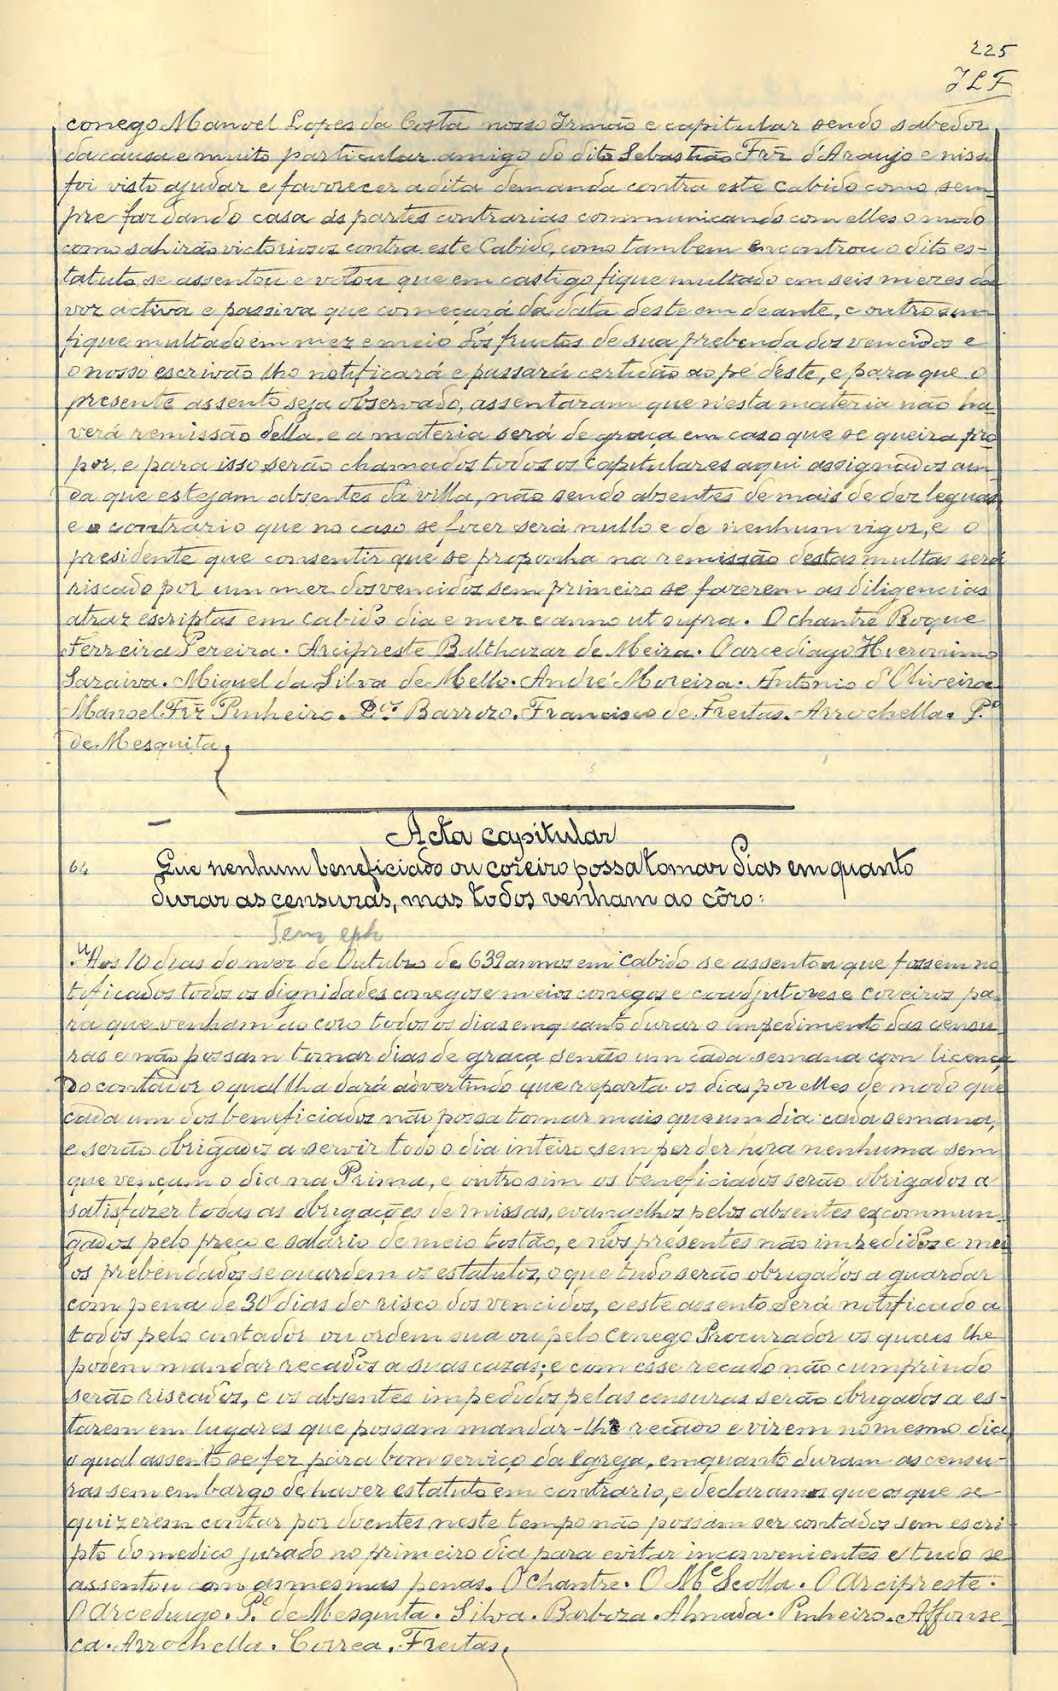 225
JLF
conego Manoel Lopes da Costa nosso Irmão e capitular sendo sabedor
da causa e muito particular amigo do dito Sebastião Frz d'Araujo e nisso
foi visto ajudar e favorecer a dita demanda contra este cabido como sem-
pre far dando casa ás partes contrarias communicando com elles o modo
como sahirão victoriosos contra este Cabido, como tambem encontrou o dito es-
tatuto, se assentou e votou que em castigo fique multado em seis mezes de
voz activa e passiva que começará da data deste em deante, e outro sim
fique multado em mez e meio dos fructos de sua prebenda dos vencidos e
o nosso escrivão lho notificará e passará certidão ao pé déste, e para que o
presente assento seja observado, assentaram que n'esta materia não ha-
verá remissão della, e a materia será de graça em caso que se queira pro
por, e para isso serão chamados todos os capitulares aqui assignados ain-
da que estejam absentes da villa, não sendo absentes de mais de dez leguas
e o contrario que no caso se fizer será nullo e de nenhum vigor, e o
presidente que consentir que se proponha na remissão destas multas será
riscado por um mez dos vencidos sem primeiro se fazerem as diligencias
atraz escriptas em cabido dia e mez e anno ut supra. O chantre Roque
Ferreira Pereira. Arcipreste Balthazar de Meira. O arcediago Hieronimo
Saraiva. Miguel da Silva de Mello. André Moreira. Antonio d'Oliveira
Manoel Frz Pinheiro. Barrozo. Francisco de Freitas. Arrochella. P.º
de Mesquita.
Acta capitular
64 Que nenhum beneficiado ou coreiro possa tomar dias em quanto
durar as censuras, mas todos venham ao côro:
Tem eph
Aos 10 dias do mez de Outubro de 639 annos em cabido se assentou que fossem no
tificados todos os dignidades conegos e meios conegos e coadjutores e coreiros pa-
ra que venham ao coro todos os dias emquanto durar o impedimento das censu-
ras e não possam tomar dias de graça senão um cada semana com licença
do contador o qual lha dará advertindo que reparta os dias por elles de modo que
cada um dos beneficiados não possa tomar mais que um dia cada semana,
e serão obrigados a servir todo o dia inteiro sem perder hora nenhuma sem
que vençam o dia na Prima, e outro sim os beneficiados serão obrigados a
satisfazer todas as obrigações de missas, evangelhos pelos absentes excommun-
gados pelo preço e salario de meio tostão, e nos presentes não impedidos e mei
os prebendados se guardem os estatutos, o que tudo serão obrigados a guardar
com pena de 30 dias de risco dos vencidos, e este assento será notificado a
todos pelo contador ou ordem sua ou pelo Conego Procurador os quaes lhe
podem mandar recados a suas cazas; e com esse recado não cumprindo
serão riscados, e os absentes impedidos pelas censuras serão obrigados a es-
tarem em lugares que possam mandar-lhe recado e virem no mesmo dia
o qual assento se fez para bom serviço da Egreja, emquanto duram as censu-
ras sem embargo de haver estatuto em contrario, e declaramos que os que se
quizerem contar por doentes neste tempo não possam ser contados sem escri
pto do medico jurado no primeiro dia para evitar inconvenientes e tudo se
assentou com as mesmas penas. O chantre. O M.e Scolla. O Arcipreste.
O Arcediago. P.º de Mesquita. Silva. Barboza. Almada. Pinheiro. Affonse
ca. Arrochella. Correa. Freitas.